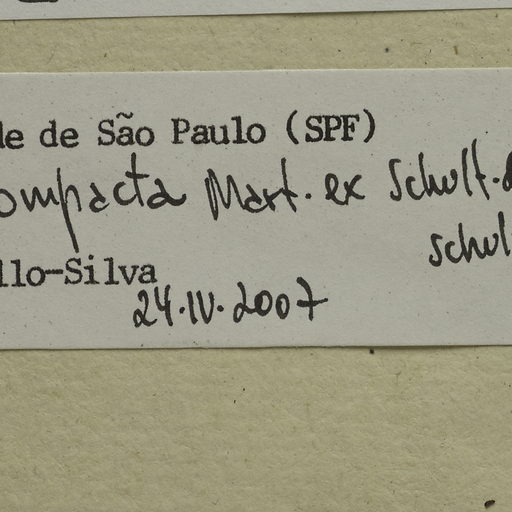 de de São Paulo (SPF)
ompacta Mart. ex Schult.
Schul
llo-Silva
24.IV.2007